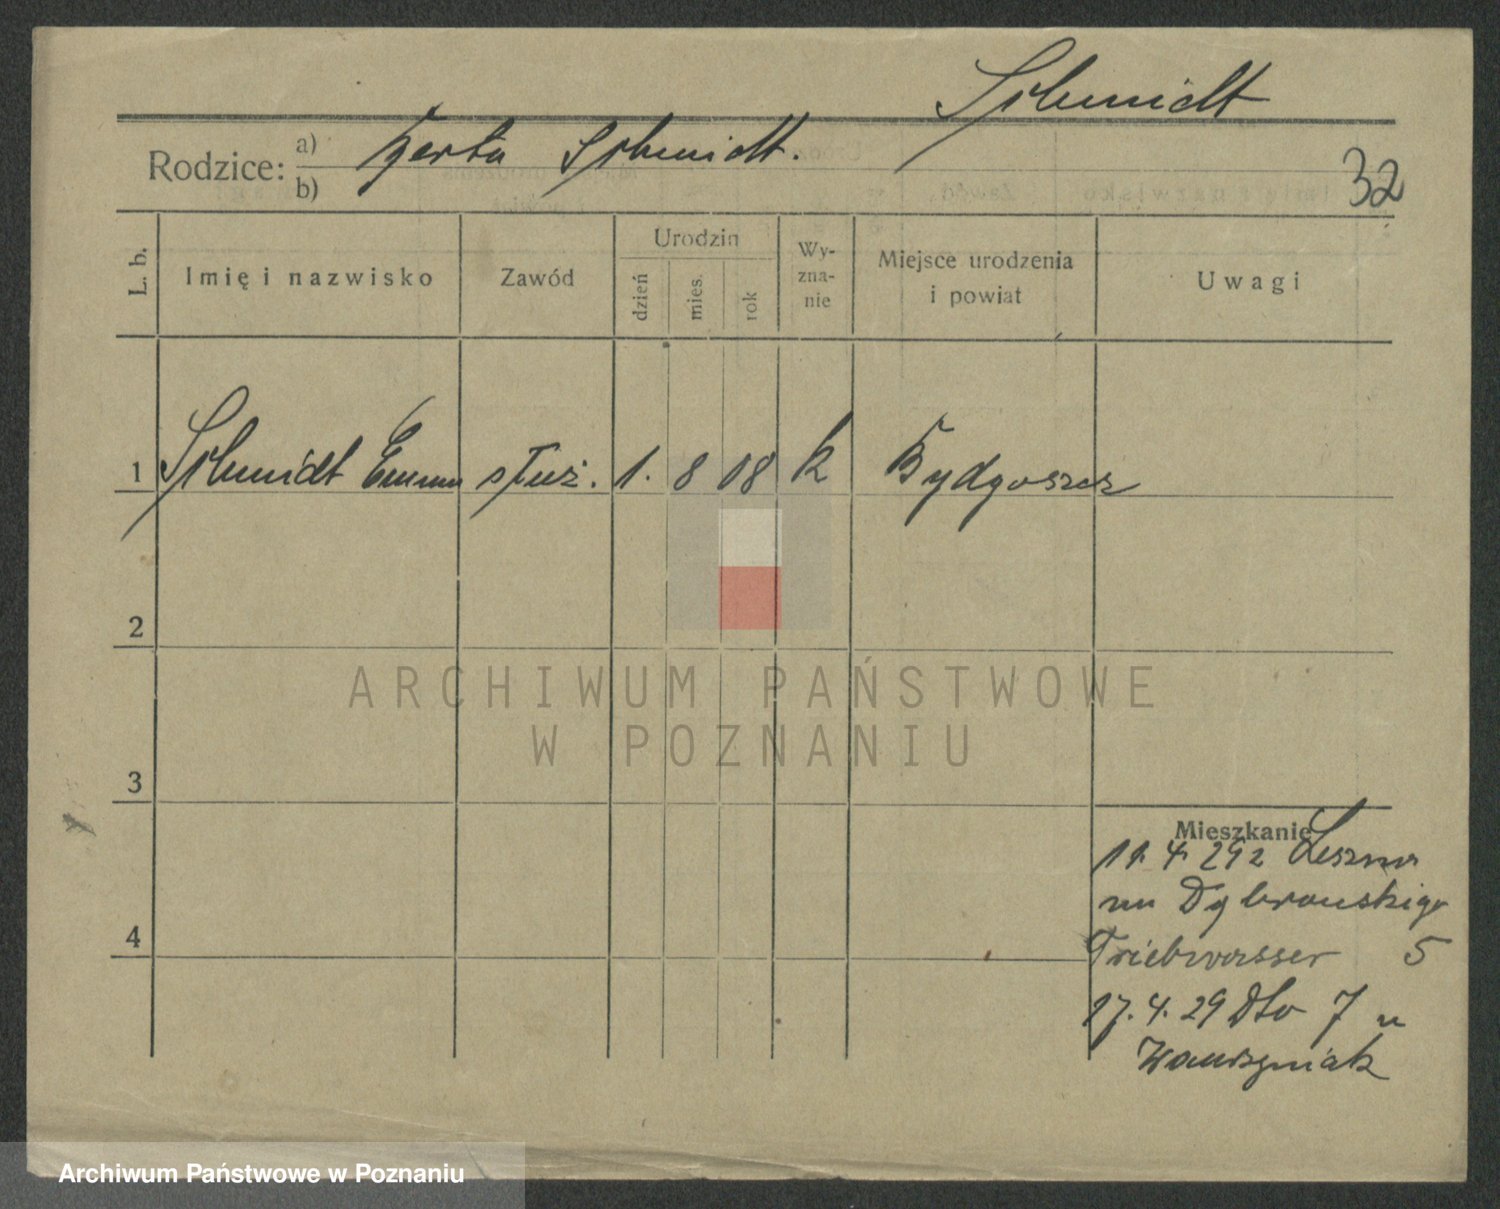 Schmidt
Rodzice: a) Herta Schmidt.
b)
32
L. b. Imię i nazwisko Zawód Urodzin dzień mies. rok Wy-zna-nie Miejsce urodzenia i powiat Uwagi
1 Schmidt Emma służ. 1. 8 08 k Bydgoszcz
2
ARCHIWUM PAŃSTWOWE
W POZNANIU
3
Mieszkanie
11. 4 29 z Leszna
na Dąbrowskiego
Triebwasser 5
17. 4. 29 Dto 7 u
Wawrzyniak
4
Archiwum Państwowe w Poznaniu